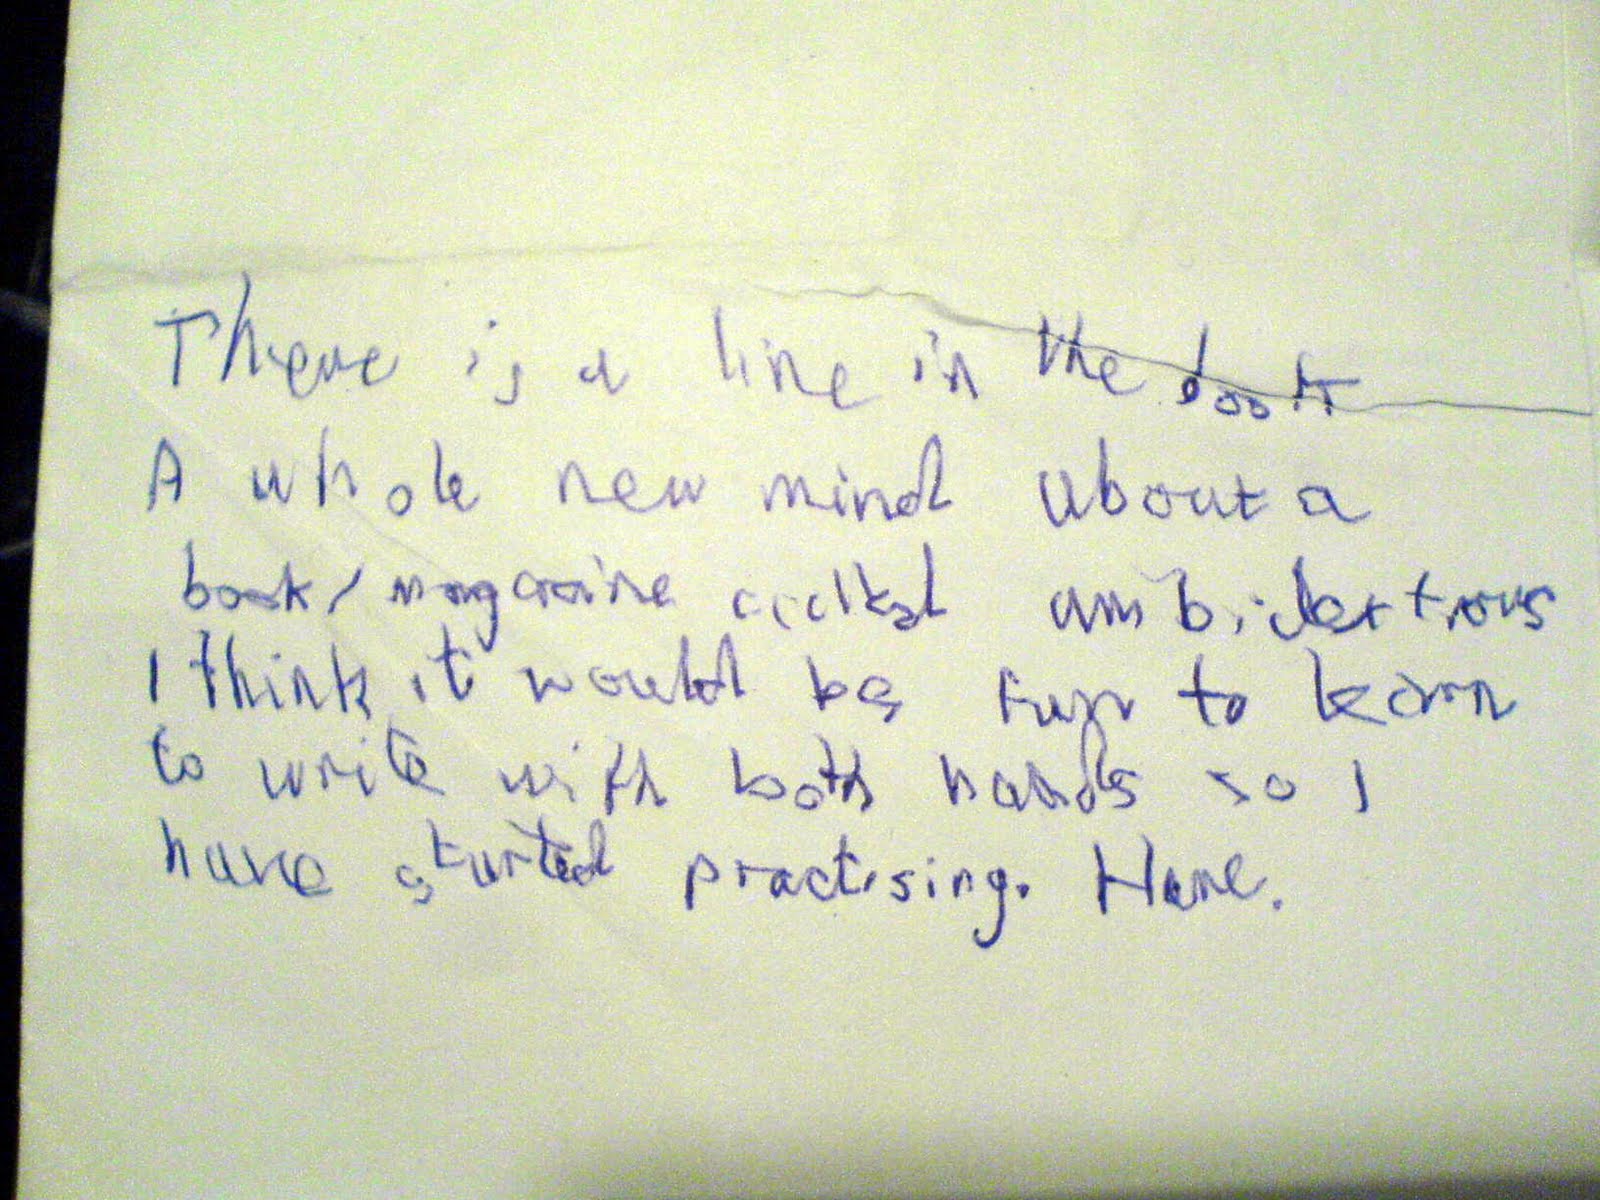 There is a line in the book
A whole new mind about a
book/magazine called ambidextrous
I think it would be fun to learn
to write with both hands so I
have started practising. Here.